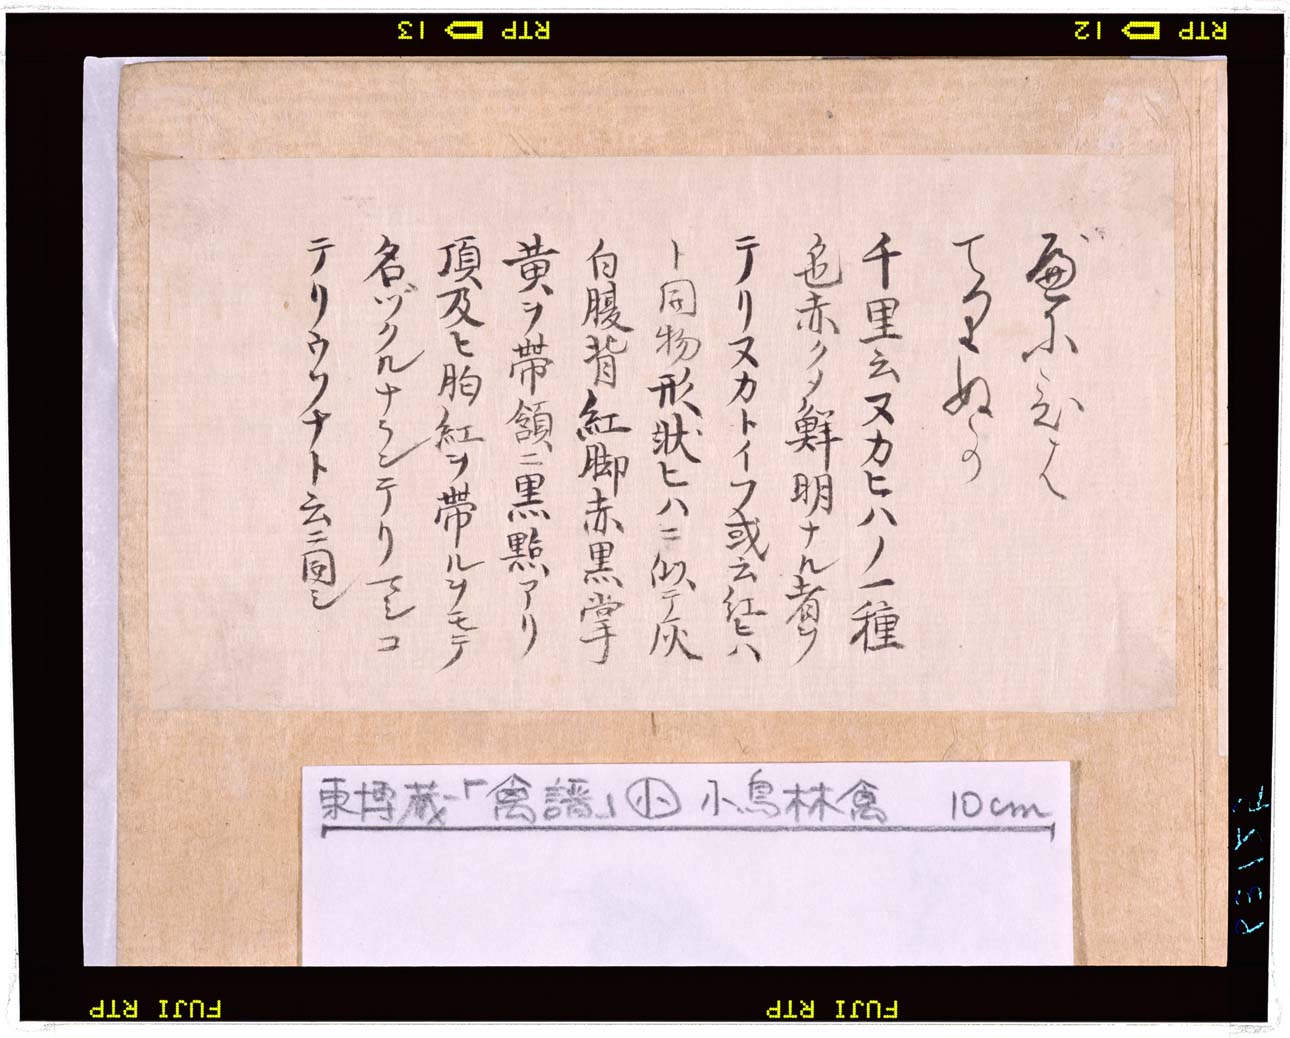 べにひは
てりぬか
千里云ヌカヒハノ一種
色赤クメ鮮明ナル者ヲ
テリヌカトイフ或云紅ヒハ
ト同物形状ヒハニ似テ灰
白腹背紅脚赤黒掌
黄ヲ帯額ニ黒點アリ
頂及ヒ胸紅ヲ帯ルヲモテ
名ヅクルナランテリマシコ
テリウソナト云ニ同シ
東博蔵「禽譜」小 小鳥林禽 10cm
RTP 13
RTP 12
FUJI RTP
FUJI RTP